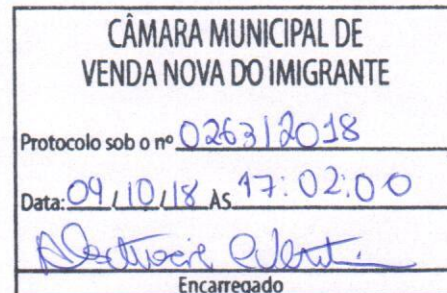 CÂMARA MUNICIPAL DE
VENDA NOVA DO IMIGRANTE
Protocolo sob o nº 0263/2018
Data: 09/10/18 Às 17:02:00
Encarregado